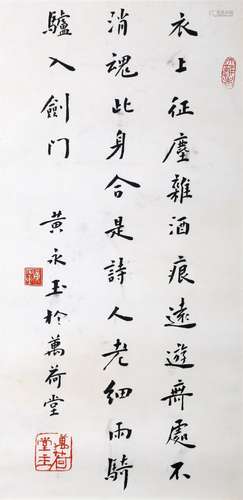 衣上征塵雜酒痕遠遊無處不
消魂此身合是詩人老細雨騎
驢入劍门
黄永玉於萬荷堂
萬荷堂主